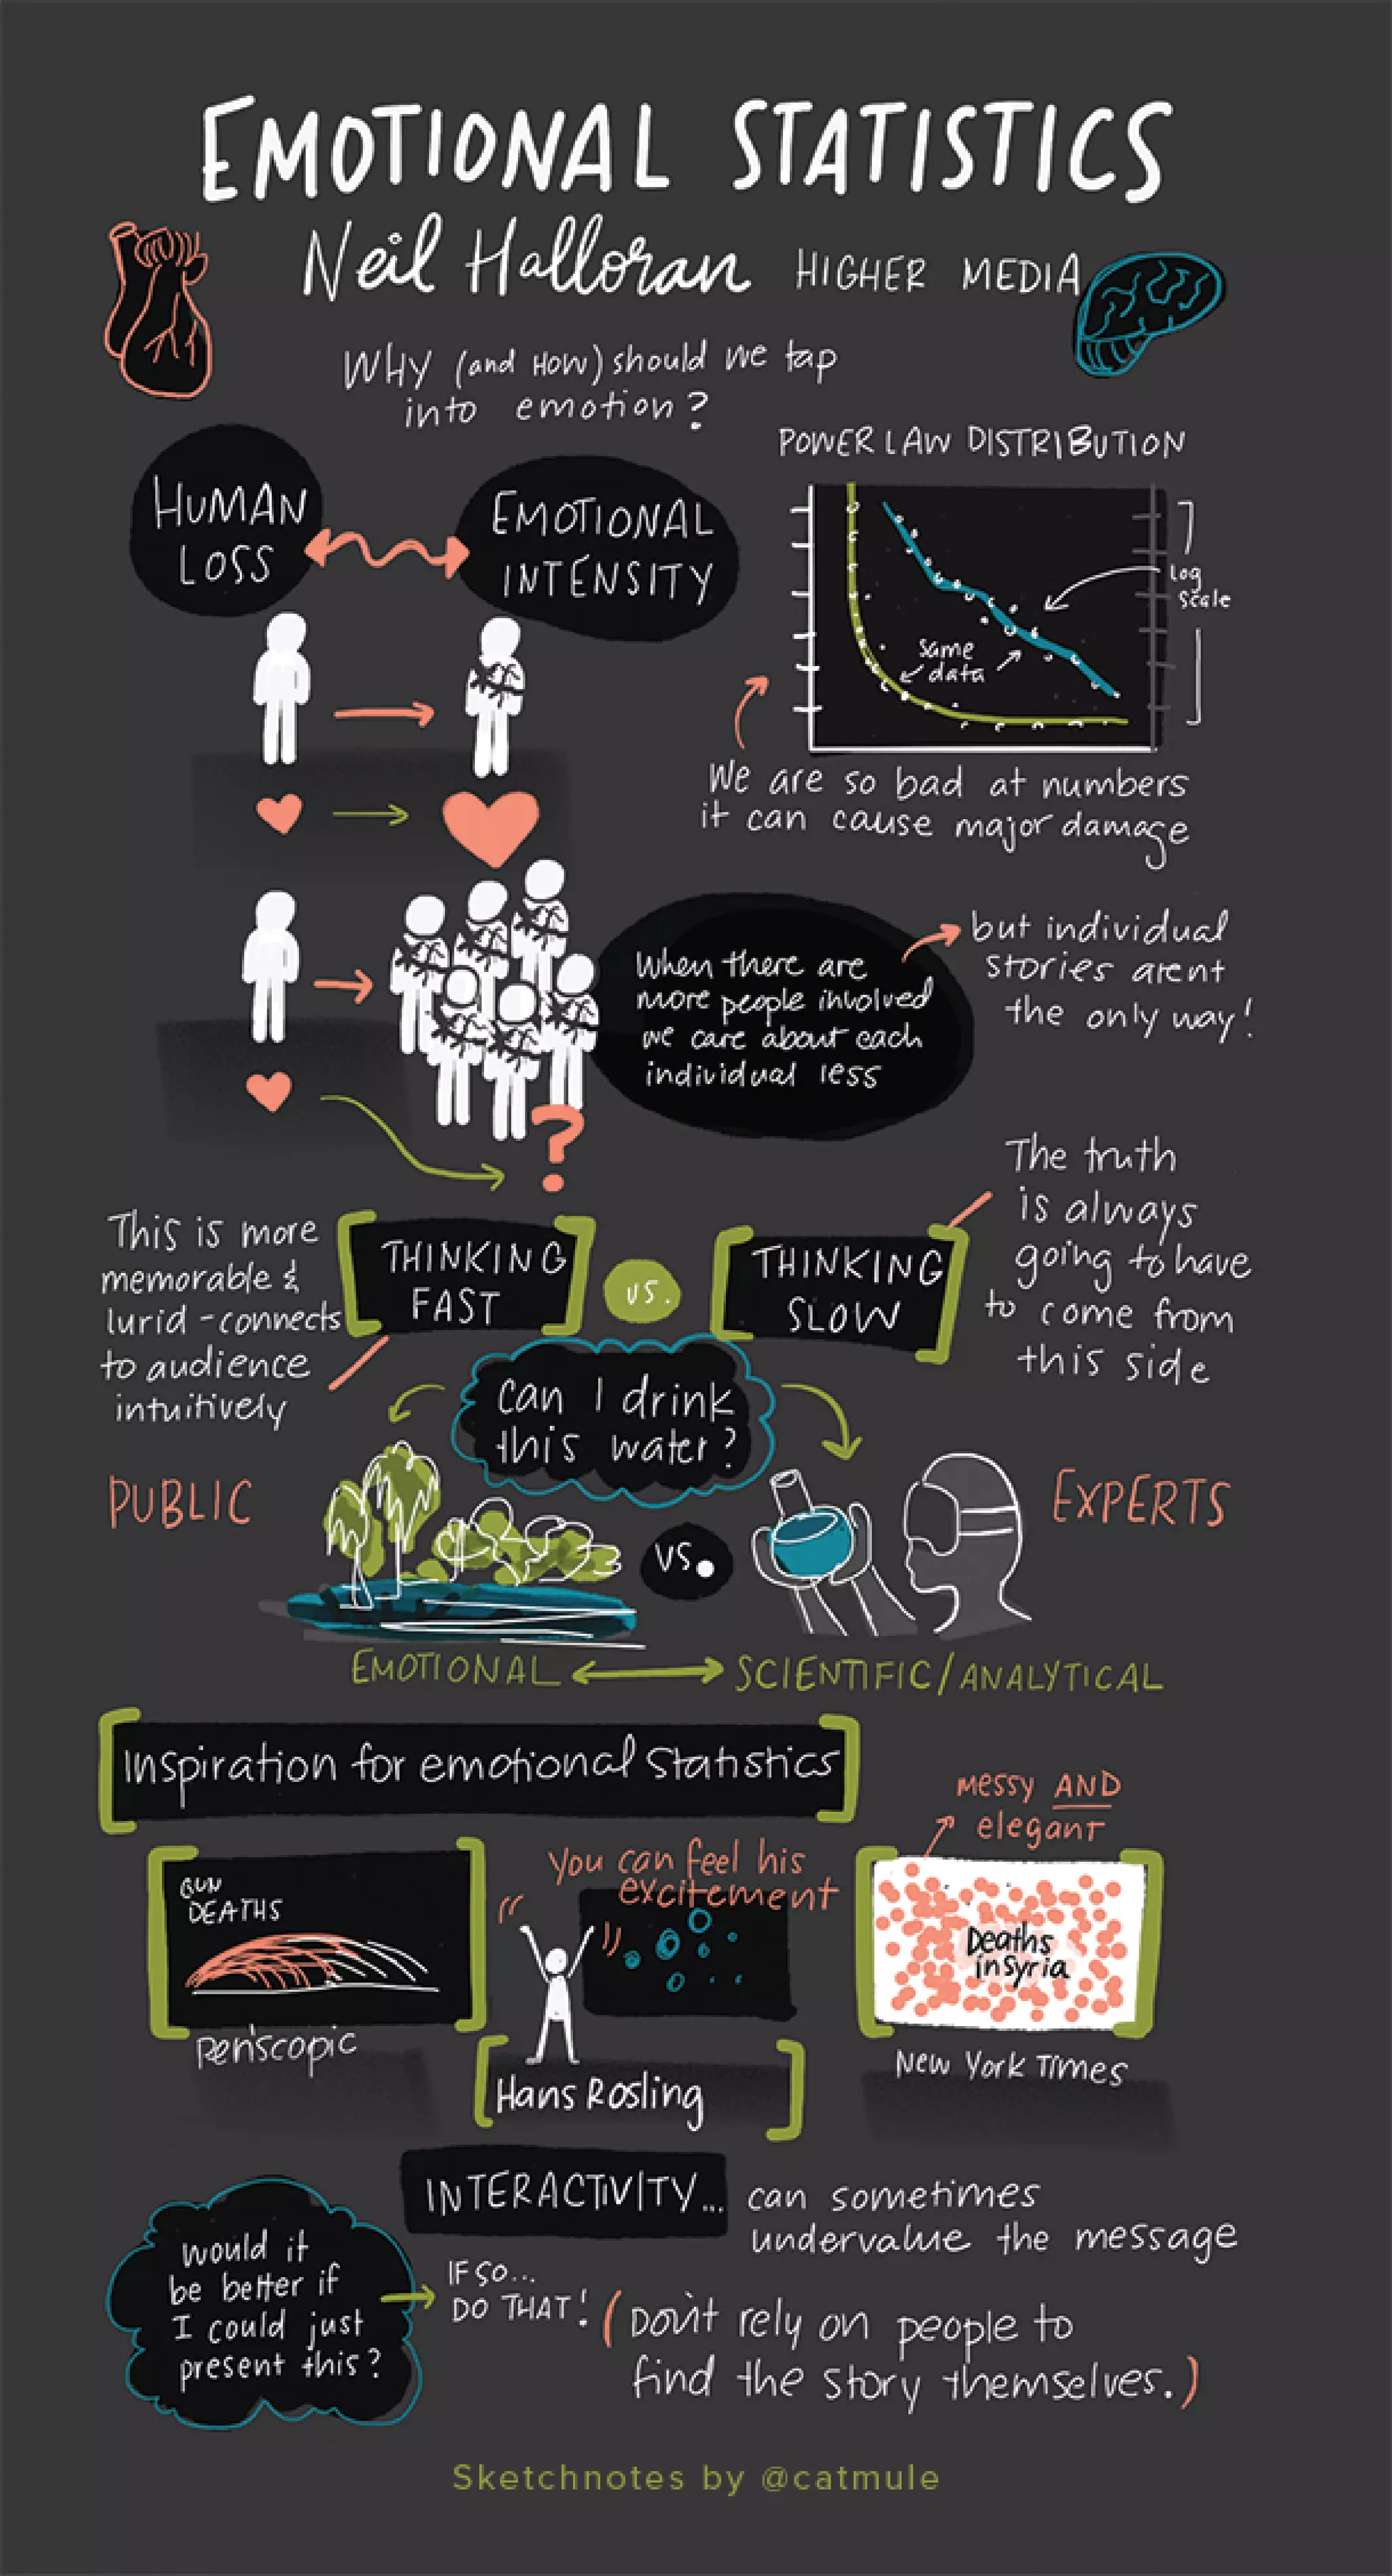 EMOTIONAL STATISTICS
Neil Halloran HIGHER MEDIA
WHY (and HOW) should we tap
into emotion?
HUMAN
LOSS
EMOTIONAL
INTENSITY
POWER LAW DISTRIBUTION
log
scale
same
data
We are so bad at numbers
it can cause major damage
When there are
more people involved
we care about each
individual less
but individual
stories arent
the only way!
This is more
memorable &
lurid - connects
to audience
intuitively
THINKING
FAST
VS.
THINKING
SLOW
The truth
is always
going to have
to come from
this side
can I drink
this water?
PUBLIC
VS.
EXPERTS
EMOTIONAL
SCIENTIFIC/ANALYTICAL
Inspiration for emotional Statistics
GUN
DEATHS
Periscopic
You can feel his
excitement
Hans Rosling
messy AND
elegant
Deaths
in Syria
New York Times
INTERACTIVITY... can sometimes
undervalue the message
would it
be better if
I could just
present this?
IF SO...
DO THAT!
(Don't rely on people to
find the story themselves.)
Sketchnotes by @catmule